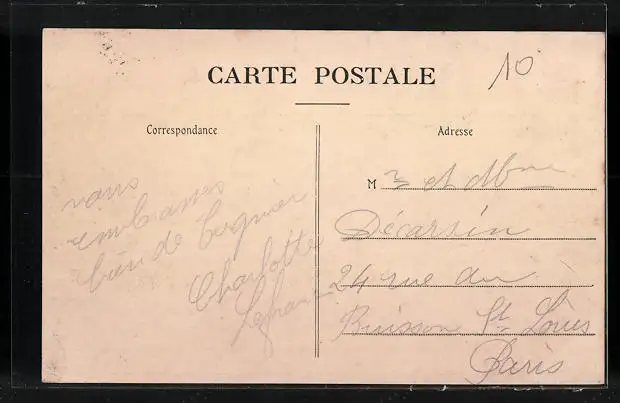 CARTE POSTALE
10
Correspondance
Adresse
vous
embrasses
bien de Tergnier
Charlotte
Lefranc
M r et Mme
Décarsin
24 rue du
Buisson St Louis
Paris